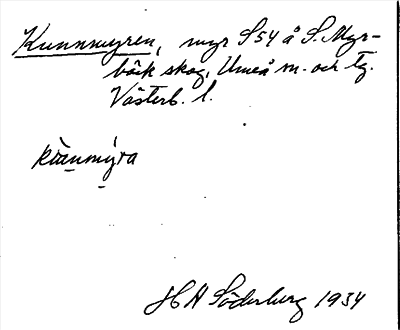 Kunnmyren, myr S54 å S. Myr-
bäck skog, Umeå sn. och tg.
Västerb. l.
H Söderberg 1934